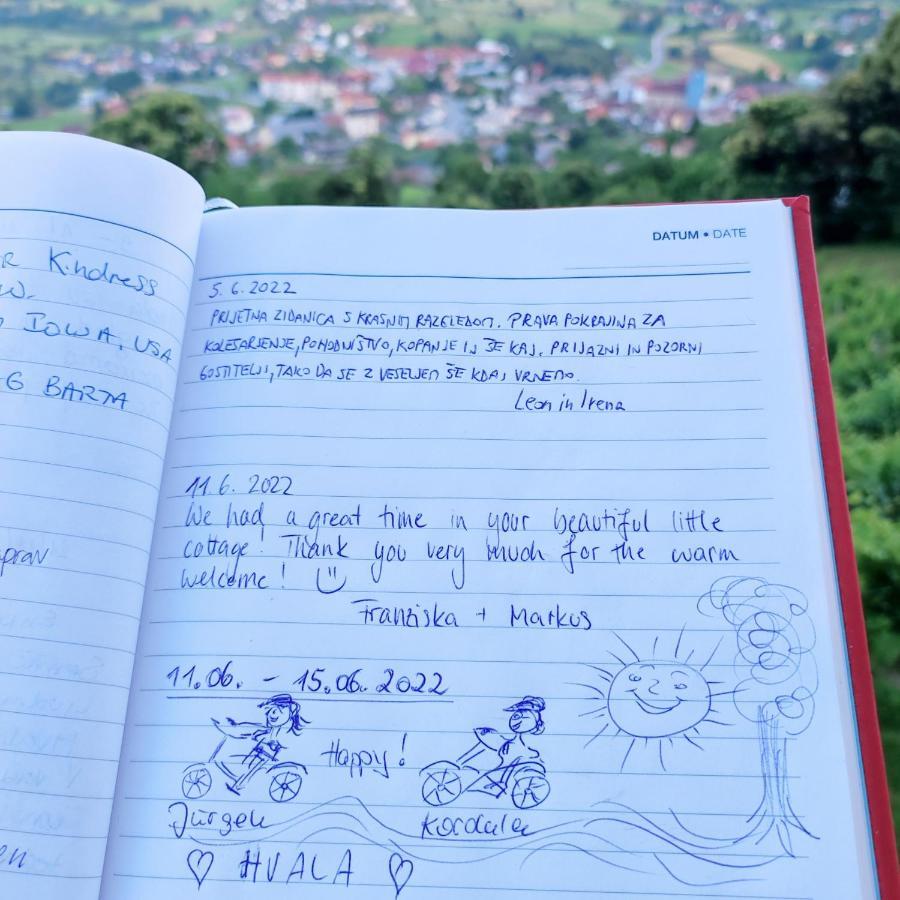 R Kindness
W.
IOWA, USA
G BARTA
prav
en
DATUM • DATE
5. 6. 2022
PRIJETNA ZIDANICA S KRASNIM RAZGLEDOM. PRAVA POKRAJINA ZA
KOLESARJENJE, POHODNIŠTVO, KOPANJE IN ŠE KAJ. PRIJAZNI IN POZORNI
GOSTITELJI, TAKO DA SE Z VESELJEM ŠE KDAJ VRNEMO.
Leon in Irena
11.6. 2022
We had a great time in your beautiful little
cottage! Thank you very much for the warm
welcome!
Franziska + Markus
11.06. - 15.06.2022
Happy!
Jürgen
HVALA